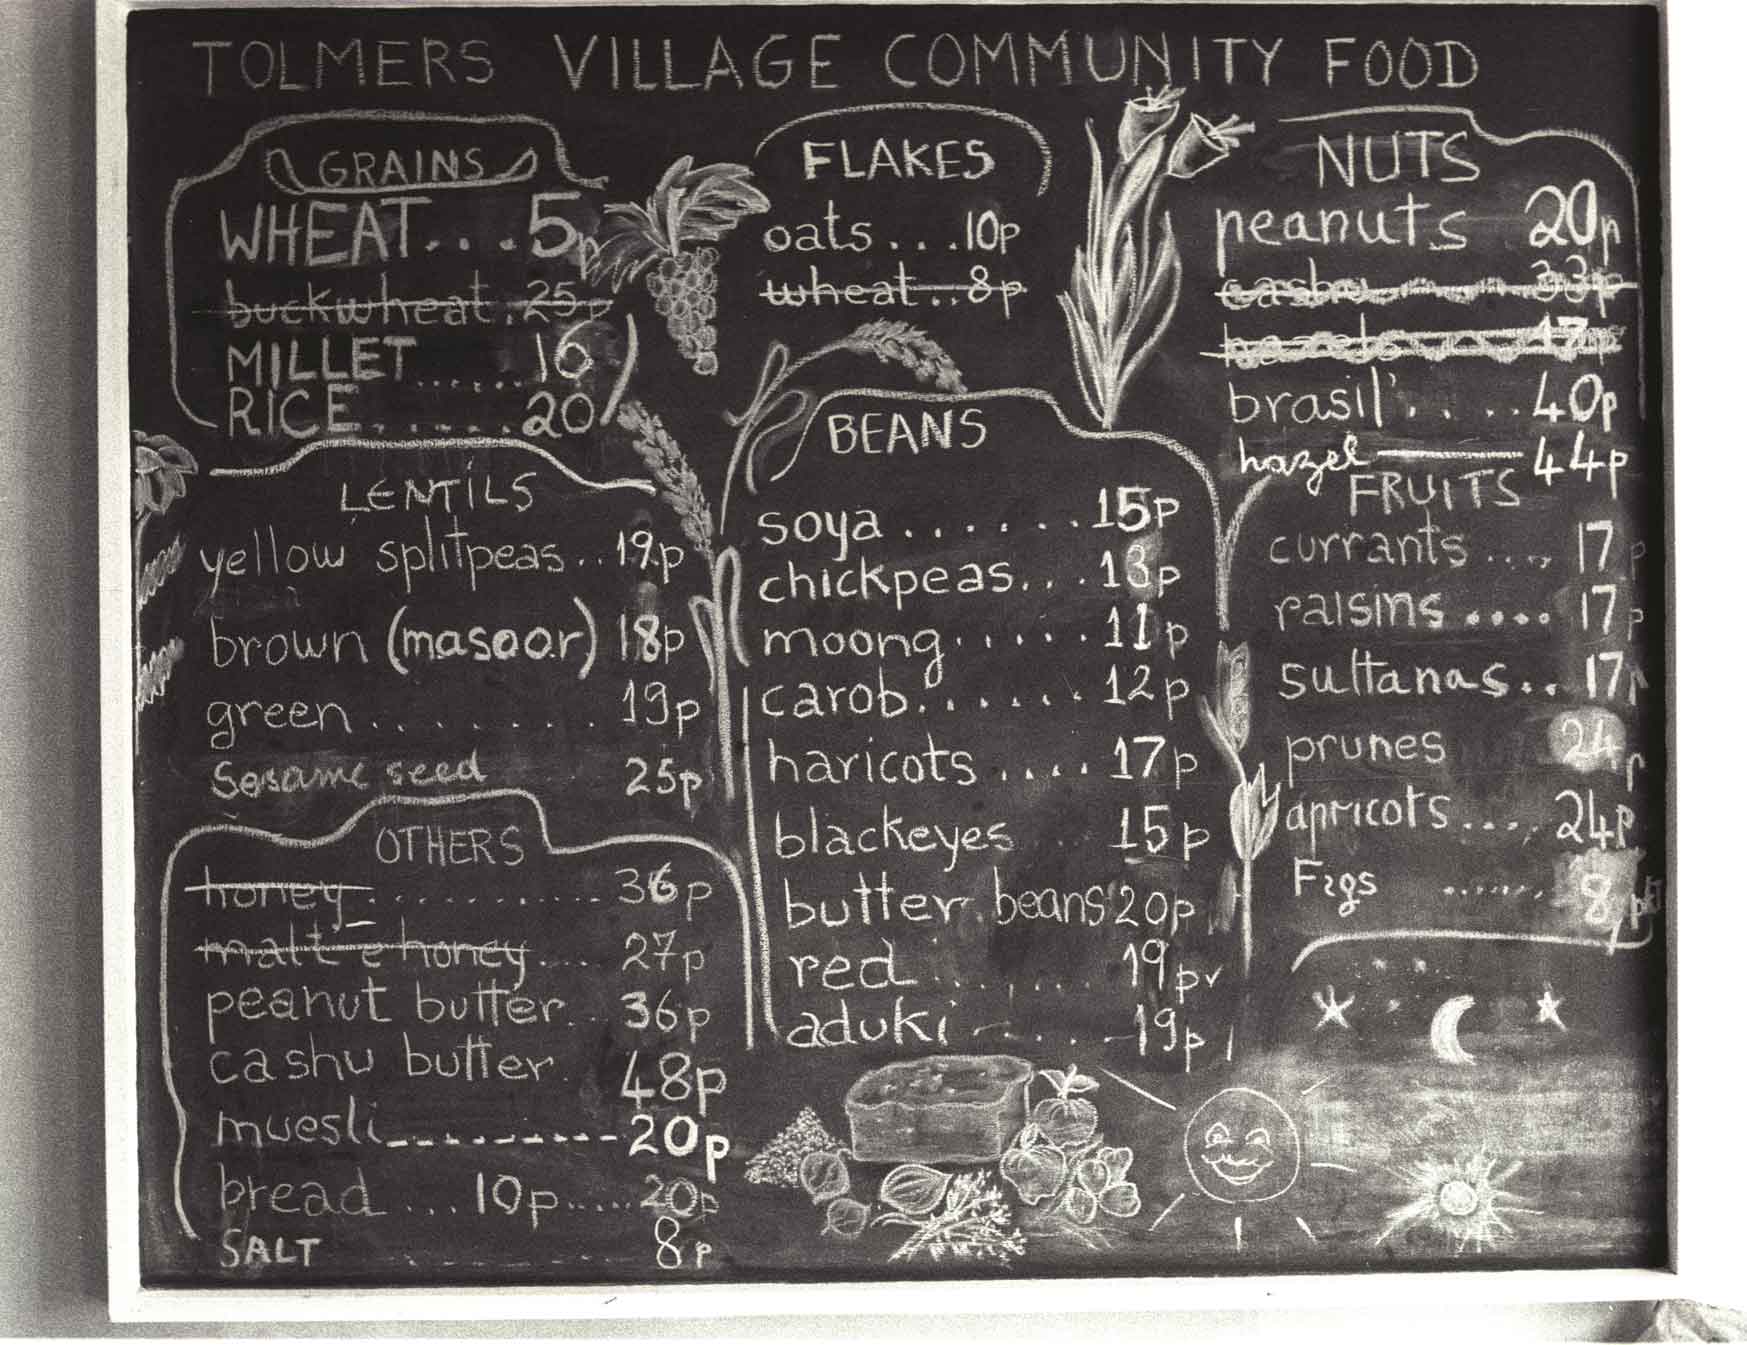 TOLMERS VILLAGE COMMUNITY FOOD
GRAINS
WHEAT....5p
buckwheat.25p
MILLET......16
RICE.......20
LENTILS
yellow splitpeas..19p
brown (masoor) 18p
green.........19p
Sesame seed 25p
OTHERS
honey............36p
malt e honey....27p
peanut butter...36p
cashu butter. 48p
muesli----------20p
bread...10p.....20p
SALT ........ 8p
FLAKES
oats....10p
wheat..8p
BEANS
soya.......15p
chickpeas...13p
moong......11p
carob.......12p
haricots....17p
blackeyes 15p
butter beans 20p
red.......19p
aduki.....19p
NUTS
peanuts 20p
cashu 33p
hazels 17p
brasil.....40p
hazel — 44p
FRUITS
currants....17p
raisins....17p
sultanas..17p
prunes 24p
apricots....24p
Figs ...... 8p